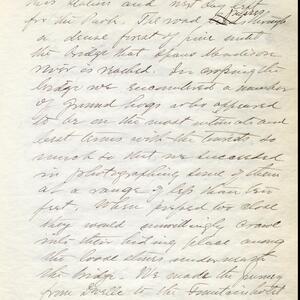 this station and next day
for the Park. The road passes through
a dense forest of pine until
the bridge that spans Madison
river is reached. In crossing the
bridge we encountered a number
of ground hogs who appeared
to be on the most intimate and
best terms with the tourists, so
much so that we succeeded
in photographing some of them
at a range of less than ten
feet. When pressed too close
they would unwillingly crawl
into their hiding place among
the loose stones underneath
the bridge. We made the journey
from Dwelle to the Fountain hotel